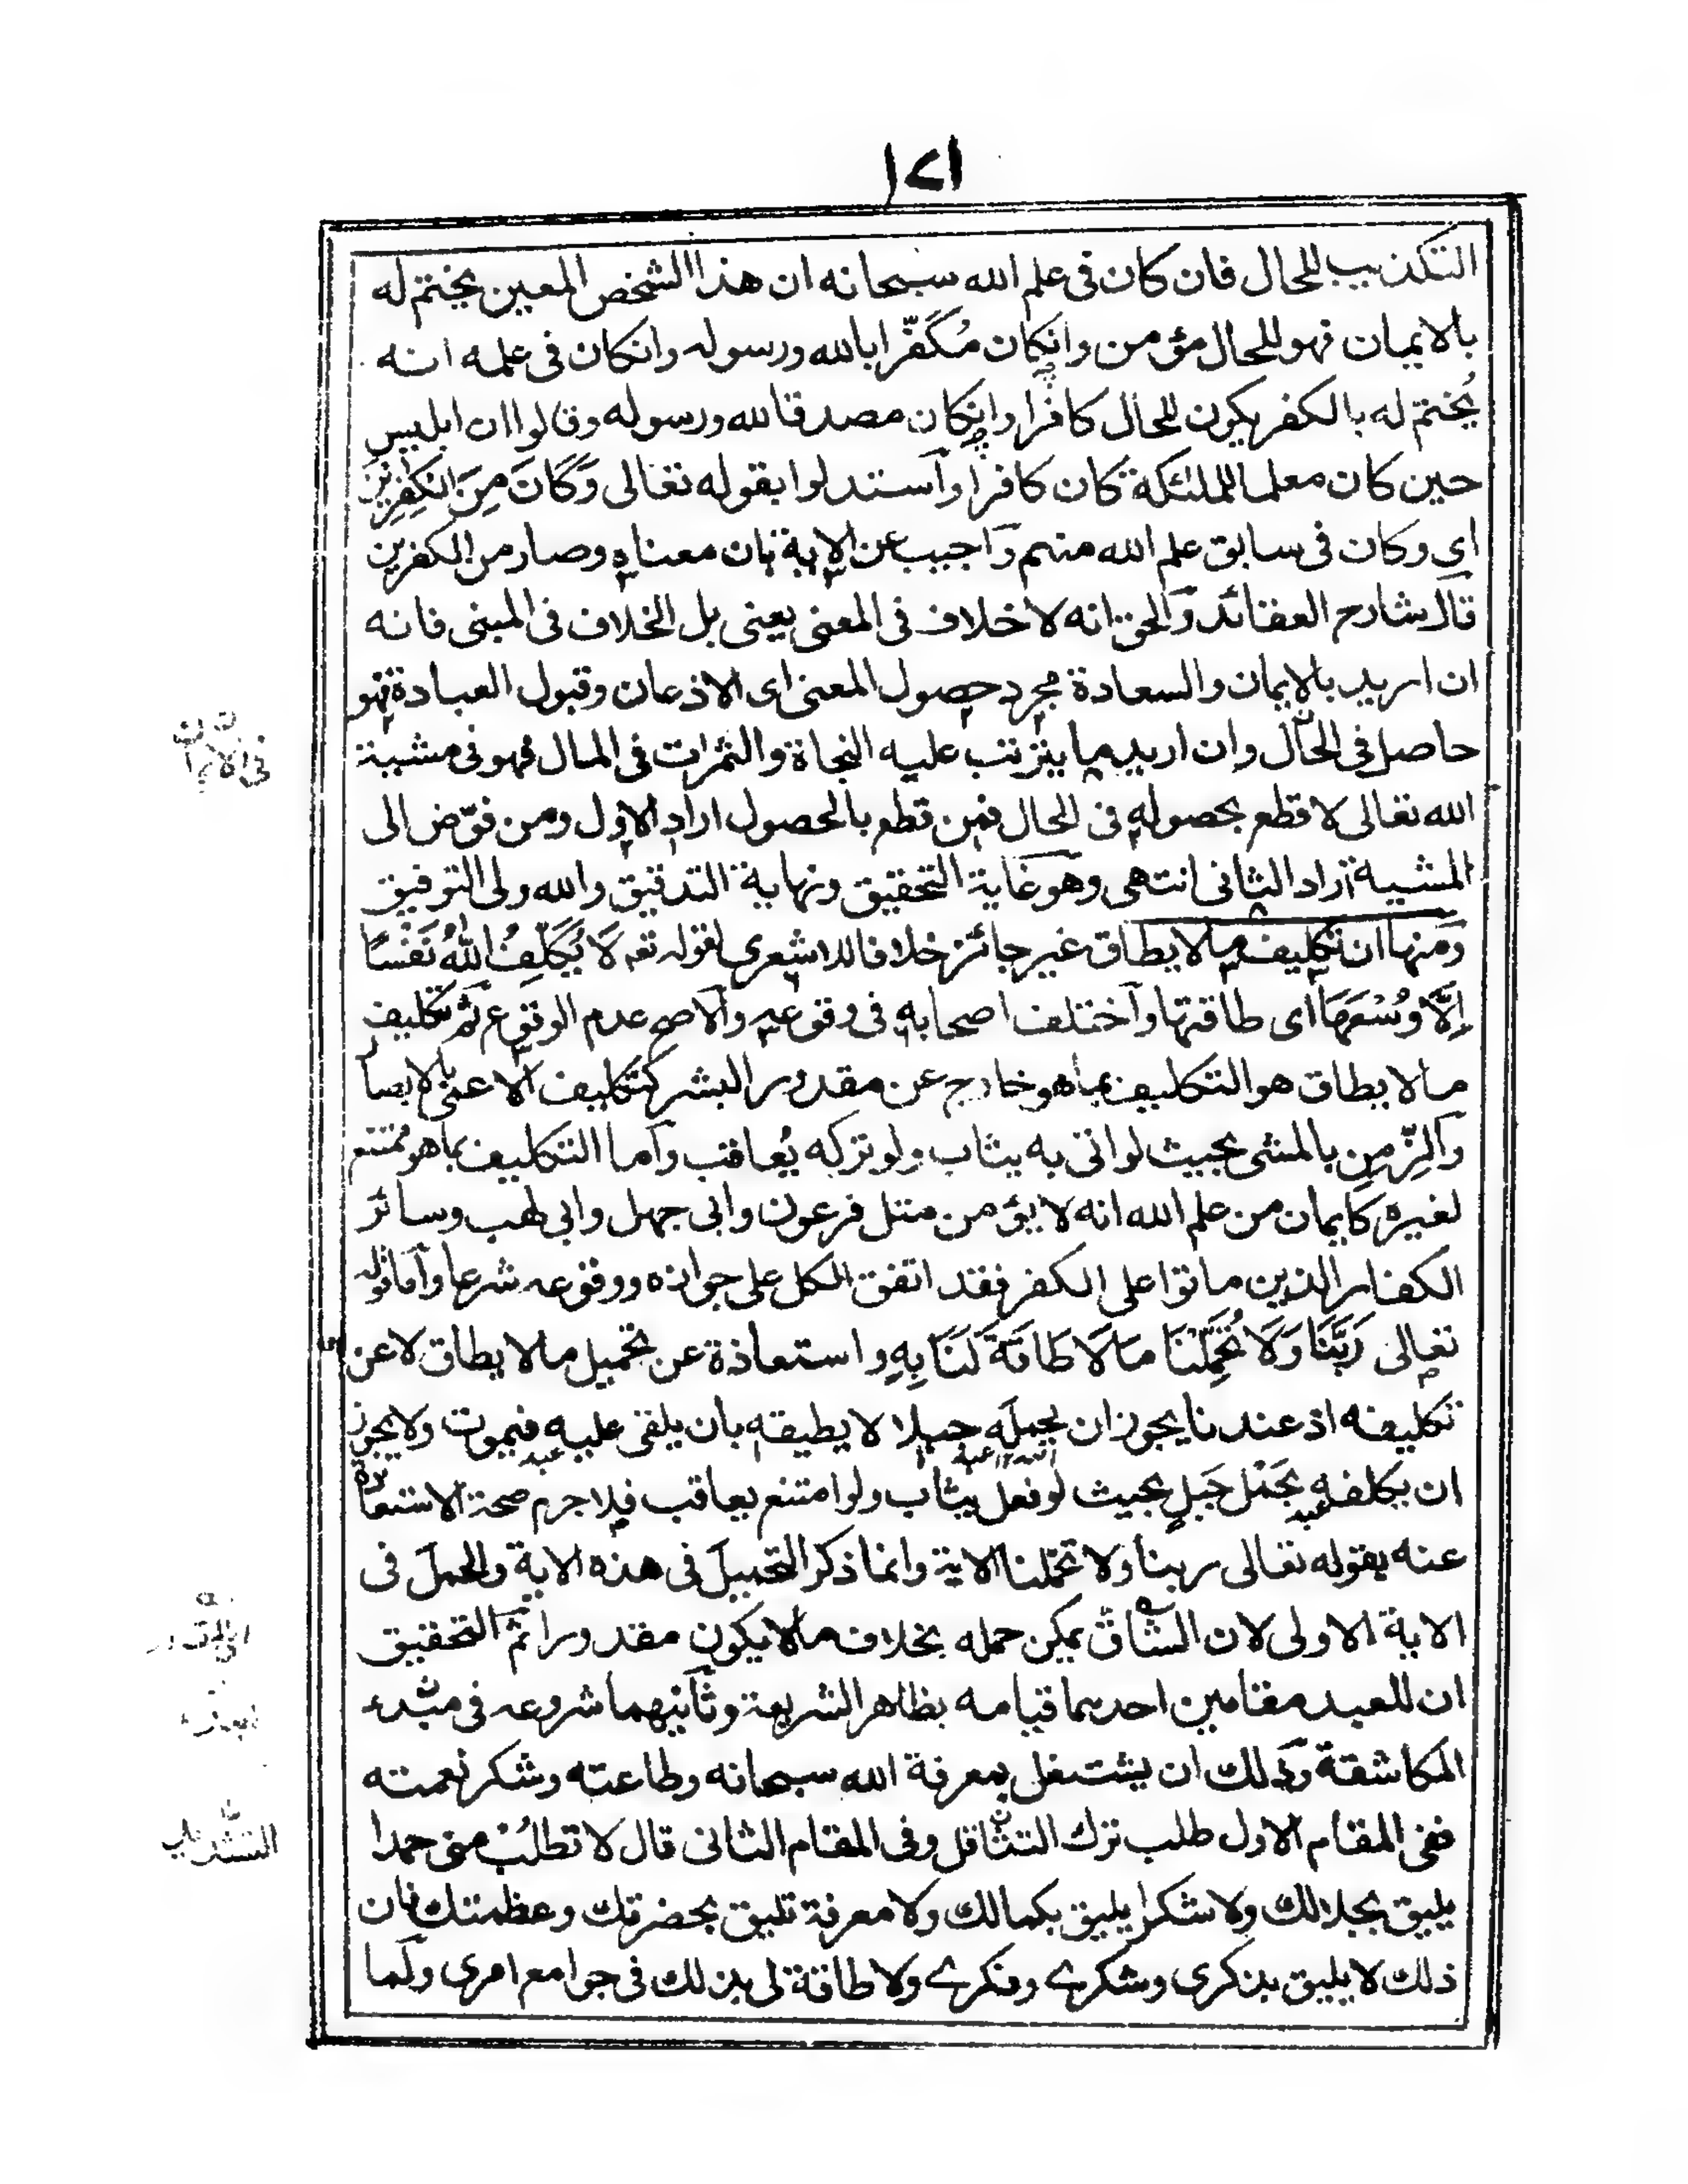 ١٧١
التكذيب للحال فان كان فى علم الله سبحانه ان هذا الشخص المعين يختم له
بالايمان فهو للحال مؤمن وانكان مُكَفّرا بالله ورسوله وانكان فى علمه انه
يُختم له بالكفر يكون للحال كافرا وانكان مصدقا لله ورسوله وقالوا ان ابليس
حين كان معلما للملئكة كان كافرا واستدلوا بقوله تعالى وَكَانَ مِنَ الْكٰفِرِيْنَ
اى وكان فى سابق علم الله منهم واجيب عن الاية بان معناه وصار من الكفرين
قال شارح العقائد والحق انه لا خلاف فى المعنى يعنى بل الخلاف فى المبنى فانه
ان اريد بالايمان والسعادة مجرد حصول المعنى اى الاذعان وقبول العبادة فهو
حاصل فى الحال وان اريد ما يترتب عليه النجاة والثمرات فى المال فهو فى مشية
الله تعالى لا قطع بحصوله فى الحال فمن قطع بالحصول اراد الاول ومن فوّض الى
المشية اراد الثانى انتهى وهو غاية التحقيق ونهاية التدقيق والله ولى التوفيق
ومنها ان تكليف ما لا يطاق غير جائز خلافا للاشعرى لقوله تعه لَا يُكَلِّفُ اللّٰهُ نَفْسًا
اِلَّا وُسْعَهَا اى طاقتها واختلف اصحابه فى وقوعه والاصح عدم الوقوع ثم تكليف
ما لا يطاق هو التكليف بما هو خارج عن مقدور البشر كتكليف الاعمى بالابصا
والزّمِن بالمشى بحيث لو اتى به يثاب ولو تركه يُعاقب واما التكليف بما هو ممتنع
لغيره كايمان من علم الله انه لا يؤمن مثل فرعون وابى جهل وابى لهب وسائر
الكفار الذين ماتوا على الكفر فقد اتفق الكل على جوازه ووقوعه شرعا واما قوله
تعالى رَبَّنَا وَلَا تُحَمِّلْنَا مَا لَا طَاقَةَ لَنَا بِهٖ واستعاذة عن تحميل ما لا يطاق لا عن
تكليفه اذ عندنا يجوز ان يحمله جبلا لا يطيقه بان يلقى عليه فيموت ولا يجوز
ان يكلفه بحَمْل جَبلٍ بحيث لو فعل يثاب ولو امتنع يعاقب فلا جرم صحة الاستعاذة
عنه بقوله تعالى ربنا ولا تحملنا الاية وانما ذكر التحميل فى هذه الاية والحمل فى
الاية الاولى لان الشاقّ يمكن حمله بخلاف ما لا يكون مقدورا ثم التحقيق
ان للعبد مقامين احدهما قيامه بظاهر الشريعة وثانيهما شروعه فى مبدء
المكاشفة وذلك ان يشتغل بمعرفة الله سبحانه وطاعته وشكر نعمته
ففى المقام الاول طلب ترك التثاقل وفى المقام الثانى قال لا تطلبْ منى حمدا
يليق بجلالك ولا شكرا يليق بكمالك ولا معرفة تليق بحضرتك وعظمتك فان
ذلك لا يليق بذكرى وشكرے وفكرے ولا طاقة لى بذلك فى جوامع امرى ولما